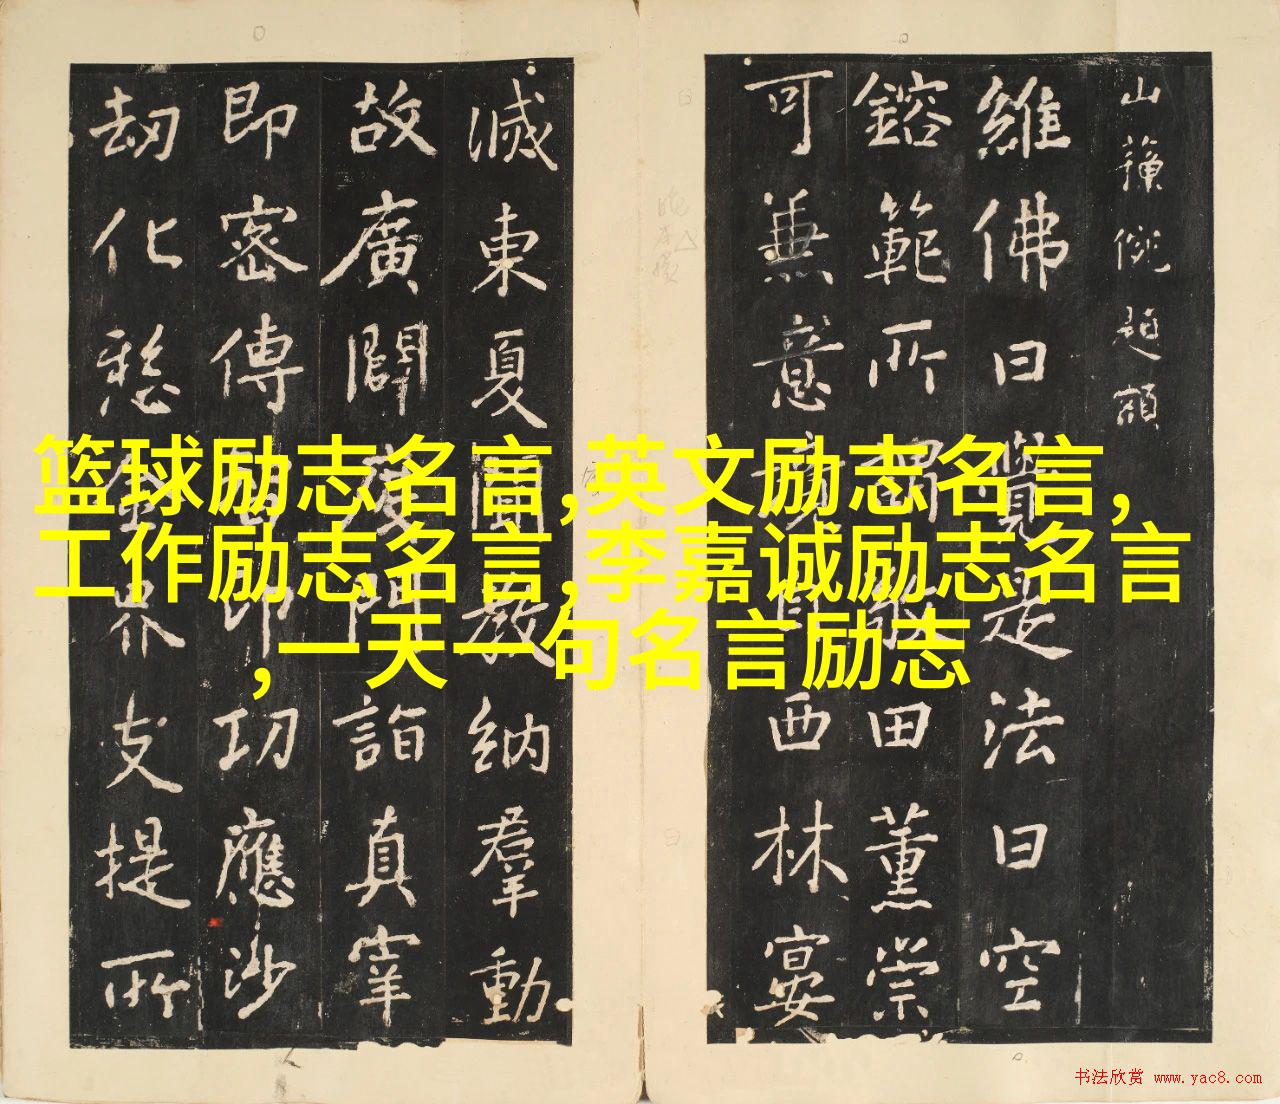 山蘓偬題額
維佛曰覺是法曰空
鎔範所田薫崇
可兼意西林宴
滅東夏圖教納羣動
故廣闢度門詣真宰
即密傳印功應沙
劫化愁金界支提所
篮球励志名言,英文励志名言,
工作励志名言,李嘉诚励志名言
,一天一句名言励志
书法欣赏 www.yac8.com